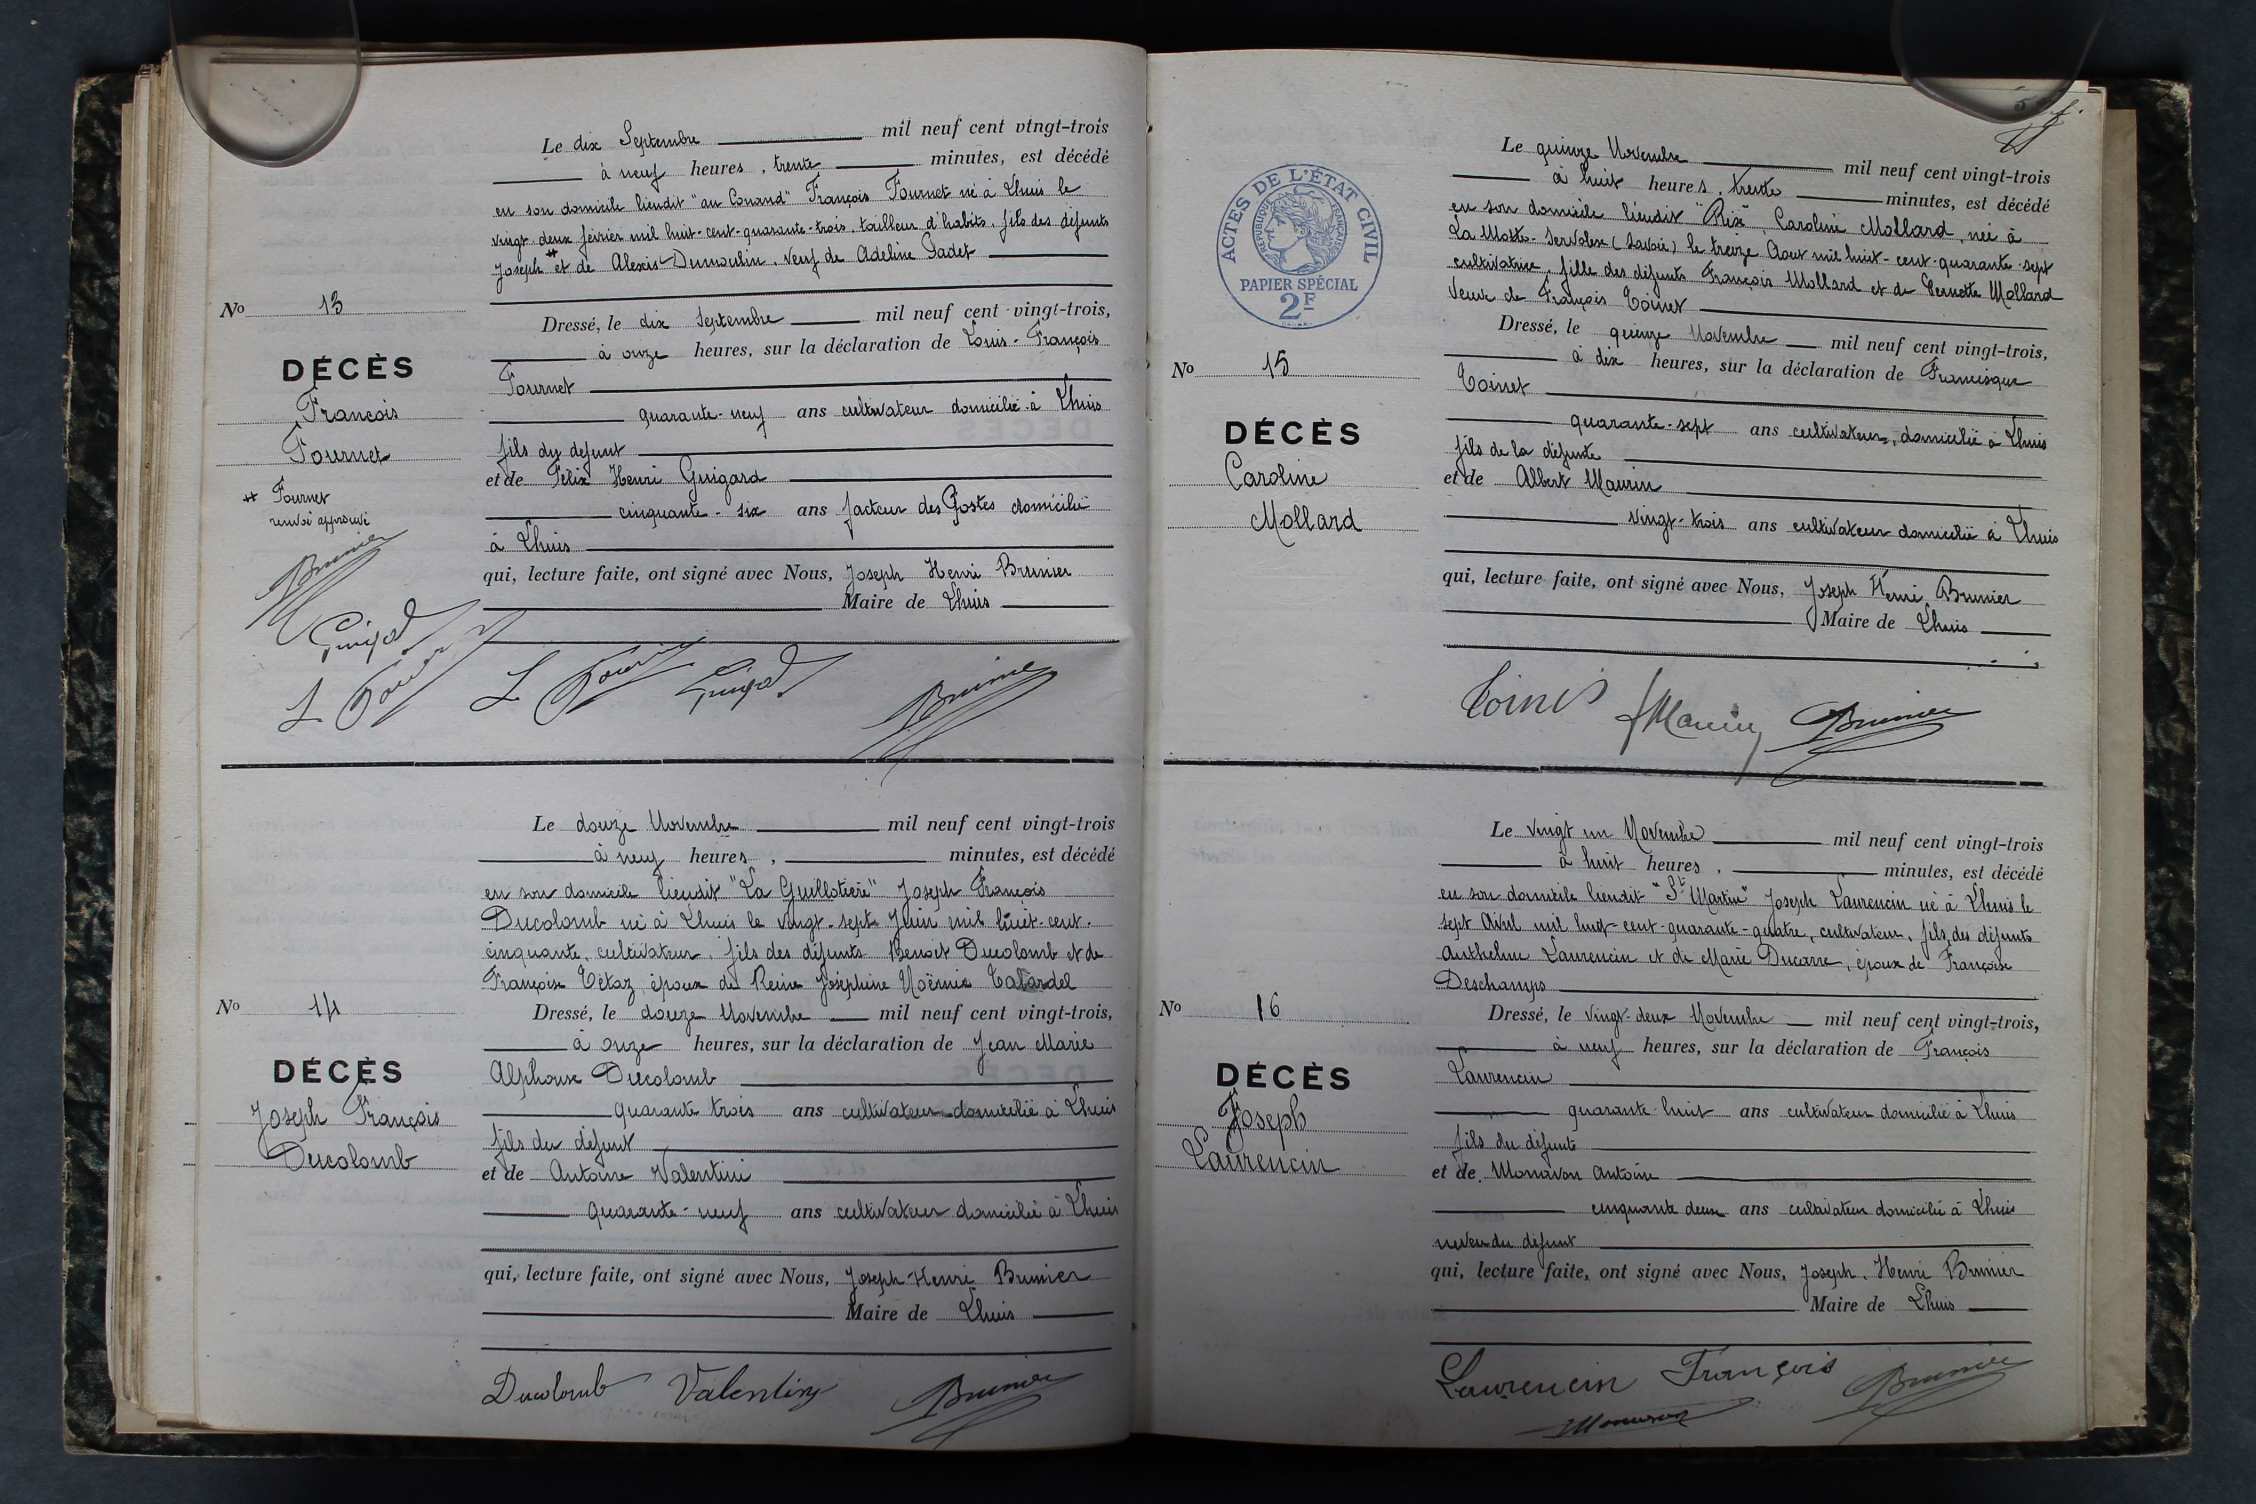 Le dix Septembre mil neuf cent vingt-trois
à neuf heures, trente minutes, est décédé
en son domicile lieudit "au Conand" François Fournet né à Lhuis le
vingt-deux février mil huit-cent-quarante-trois, tailleur d'habits, fils des défunts
Joseph # et de Alexis Dumoulin, veuf de Adeline Gadet
No 13
Dressé, le dix Septembre mil neuf cent vingt-trois,
à onze heures, sur la déclaration de Louis-François
Fournet
DÉCÈS
François
Fournet
quarante-neuf ans cultivateur domicilié à Lhuis
fils du défunt
et de Félix Henri Guigard
# Fournet
renvoi approuvé
cinquante-six ans facteur des Postes domicilié
à Lhuis
qui, lecture faite, ont signé avec Nous, Joseph Henri Brunier
Maire de Lhuis
Brunier
Brunier
Le douze Novembre mil neuf cent vingt-trois
à neuf heures, minutes, est décédé
en son domicile lieudit "La Guillotière" Joseph François
Ducolomb né à Lhuis le vingt-sept Juin mil huit-cent-
cinquante, cultivateur, fils des défunts Benoit Ducolomb et de
Françoise Tétaz, époux de Reine Joséphine Noëmie
No 14
Dressé, le douze Novembre mil neuf cent vingt-trois,
à onze heures, sur la déclaration de Jean Marie
Alphonse Ducolomb
DÉCÈS
Joseph François
Ducolomb
quarante trois ans cultivateur domicilié à Lhuis
fils du défunt
et de Antoine Valentini
quarante-neuf ans cultivateur domicilié à Lhuis
qui, lecture faite, ont signé avec Nous, Joseph Henri Brunier
Maire de Lhuis
Ducolomb Valentiny Brunier
Le quinze Novembre mil neuf cent vingt-trois
à huit heures, trente minutes, est décédé
en son domicile lieudit "Rix" Caroline Mollard, née à
La Motte-Servolex (Savoie) le treize Aout mil huit-cent-quarante-sept
cultivatrice, fille des défunts François Mollard et de Pernette Mollard
Veuve de François Toinet
ACTES DE L'ÉTAT CIVIL
RÉPUBLIQUE FRANÇAISE
PAPIER SPÉCIAL
2F
No 15
Dressé, le quinze Novembre mil neuf cent vingt-trois,
à dix heures, sur la déclaration de Francisque
Toinet
DÉCÈS
Caroline
Mollard
quarante-sept ans cultivateur, domicilié à Lhuis
fils de la défunte
et de Albert Maurin
vingt-trois ans cultivateur domicilié à Lhuis
qui, lecture faite, ont signé avec Nous, Joseph Henri Brunier
Maire de Lhuis
Toinet Maurin Brunier
Le vingt un Novembre mil neuf cent vingt-trois
à huit heures, minutes, est décédé
en son domicile lieudit "St Martin" Joseph Laurencin né à Lhuis le
sept Avril mil huit-cent-quarante-quatre, cultivateur, fils des défunts
Anthelme Laurencin et de Marie Ducarre, époux de Françoise
Deschamps
No 16
Dressé, le vingt-deux Novembre mil neuf cent vingt-trois,
à neuf heures, sur la déclaration de François
Laurencin
DÉCÈS
Joseph
Laurencin
quarante-huit ans cultivateur domicilié à Lhuis
fils du défunte
et de Monavon Antoine
cinquante deux ans cultivateur domicilié à Lhuis
neveu du défunt
qui, lecture faite, ont signé avec Nous, Joseph Henri Brunier
Maire de Lhuis
Laurencin François Brunier
Monavon